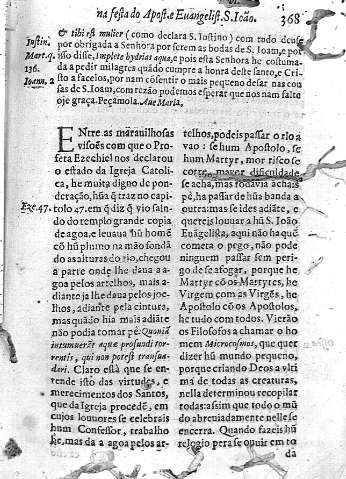 na festa do Apost. e Euangelist. S. Ioão. 368
& tibi est mulier ( como declara S. Iustino ) com tudo deuse
por obrigada a Senhora por serem as bodas de S. Ioam, e por
isso disse, Implete hydrias aqua, e pois esta Senhora he costuma-
da a pedir milagres quãdo cumpre a honra deste santo, e Cri-
sto a facelos, por nam cõsentir o mais pequeno desar nas cou-
sas de S. Ioam, com rezão podemos esperar que nos nam falte
oje graça. Peçamola. Aue Maria.
Iustin.
Mart. q.
136.
Ioann. 2
ENtre as marauilhosas
visoẽs com que o Pro-
feta Ezechiel nos declarou
o estado da Igreja Catoli-
ca, he muita digno de pon-
deração, hũa q̃ traz no capi-
tolo 47. em q̃ diz q̃ vio saîn-
do do templo grande copia
de agoa, e leuaua hũ homẽ
cõ hũ plumo na mão fondã
do as alturas do rio, chegou
a parte onde lhe daua a a-
goa pelos artelhos, mais a-
diante ja lhe daua pelos joe-
lhos, adiãte pela cintura,
mas quãdo hia mais adiãte
não podia tomar pè: Quoniã
intumuerãt aquæ profundi tor-
rentis, qui non potest transua-
deri. Claro està que se en-
tende isto das virtudes, e
merecimentos dos Santos,
que da Igreja procedẽ, em
cujos louuores se celebrais
hum Confessor, trabalho
he, mas da a agoa pelos ar-
Eze. 47.
telhos, podeis passar o rio a
vao : se hum Apostolo, se
hum Martyr, mor risco se
corre, mayor dificuldade
se acha, mas todavia achais
pê, ha passar de hũa banda a
outra: mas se ides adiãte, e
quereis louuar a hũ S. Ioão
Euãgelista, aqui não ha quẽ
comera o pego, não pode
ninguem passar sem peri-
go de se afogar, porque he
Martyr cõ os Martyres, he
Virgem com as Virgẽs, he
Apostolo cõ os Apostolos,
he tudo com todos. Vierão
os Filosofos a chamar o ho
mem Microcosmus, que quer
dizer hũ mundo pequeno,
porque criando Deos a vlti
ma de todas as creaturas,
nella determinou recopilar
todas: assim que todo o mũ
do abreuiadamente nelle se
encerra. Quando fazeis hũ
relogio pera se ouuir em to
da